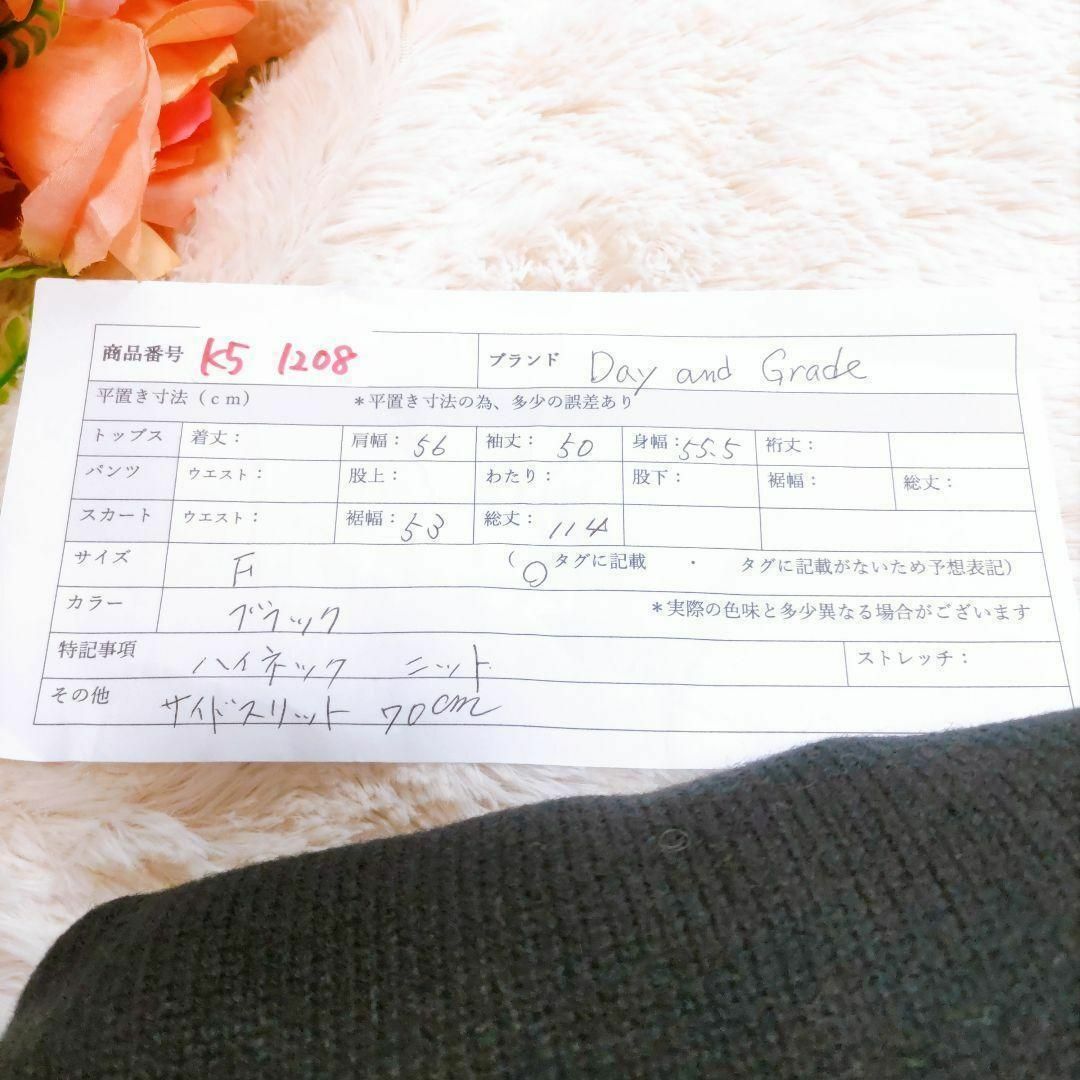 商品番号 K5 1208 ブランド Day and Grade
平置き寸法（cm） ＊平置き寸法の為、多少の誤差あり
トップス 着丈： 肩幅：56 袖丈：50 身幅：55.5 裄丈：
パンツ ウエスト： 股上： わたり： 股下： 裾幅： 総丈：
スカート ウエスト： 裾幅：53 総丈：114
サイズ F （○タグに記載 ・ タグに記載がないため予想表記）
カラー ブラック ＊実際の色味と多少異なる場合がございます
特記事項 ハイネック ニット ストレッチ：
その他 サイドスリット 70cm